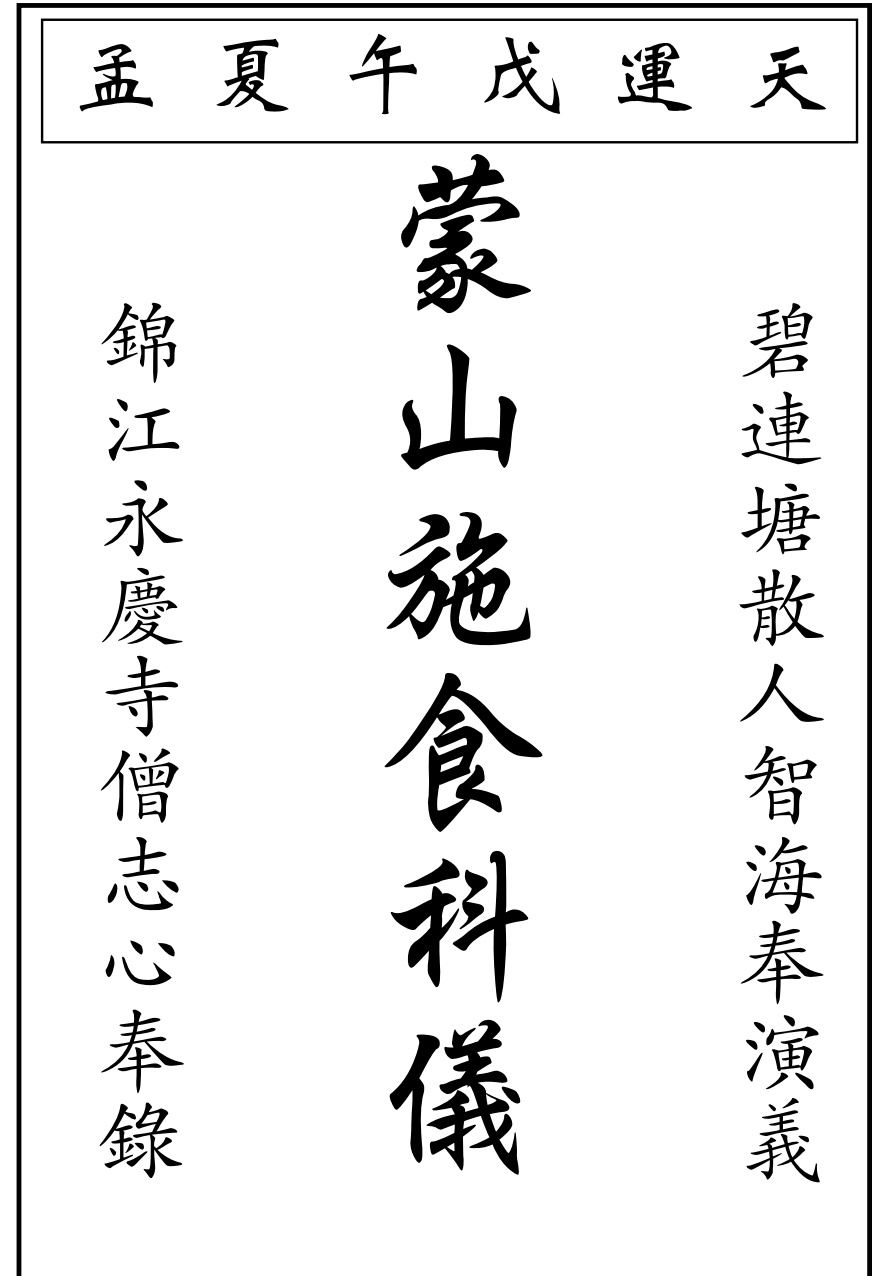 天運戊午夏孟
碧連塘散人智海奉演義
蒙山施食科儀
錦江永慶寺僧志心奉錄